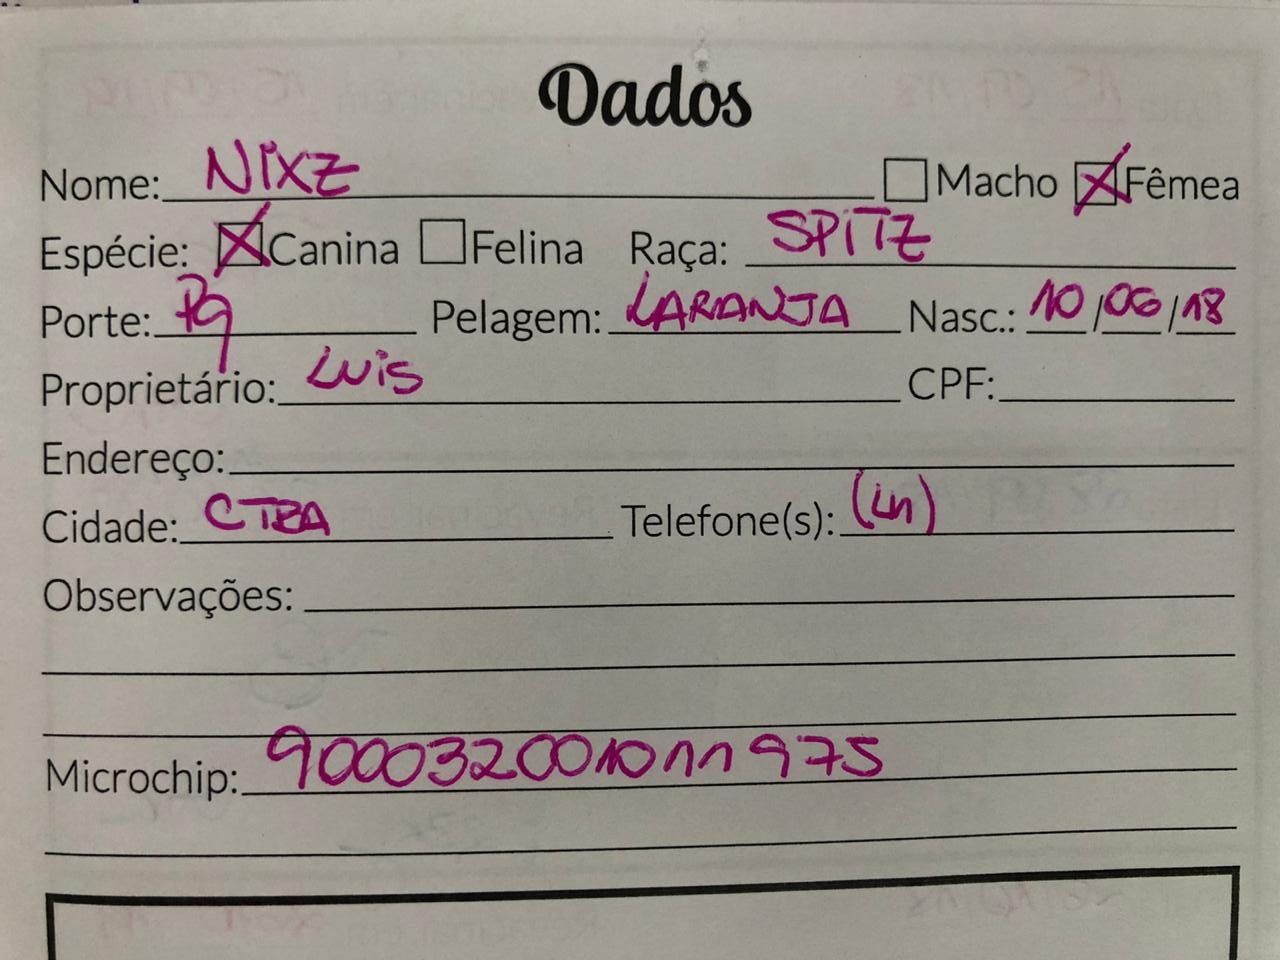 Dados
Nome: NIXZ Macho X Fêmea
Espécie: X Canina Felina Raça: SPITZ
Porte: Pq Pelagem: LARANJA Nasc.: 10/06/18
Proprietário: LUIS CPF:
Endereço:
Cidade: CTBA Telefone(s): (41)
Observações:
Microchip: 900032001011975